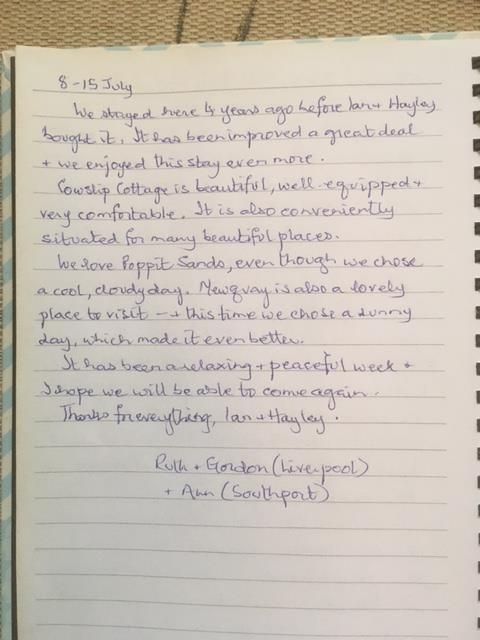 8-15 July
We stayed here 4 years ago before Ian + Hayley
bought it. It has been improved a great deal
+ we enjoyed this stay even more.
Cowslip Cottage is beautiful, well-equipped +
very comfortable. It is also conveniently
situated for many beautiful places.
We love Poppit Sands, even though we chose
a cool, cloudy day. Newquay is also a lovely
place to visit - + this time we chose a sunny
day, which made it even better.
It has been a relaxing + peaceful week +
I hope we will be able to come again.
Thanks for everything, Ian + Hayley.
Ruth + Gordon (Liverpool)
+ Ann (Southport)